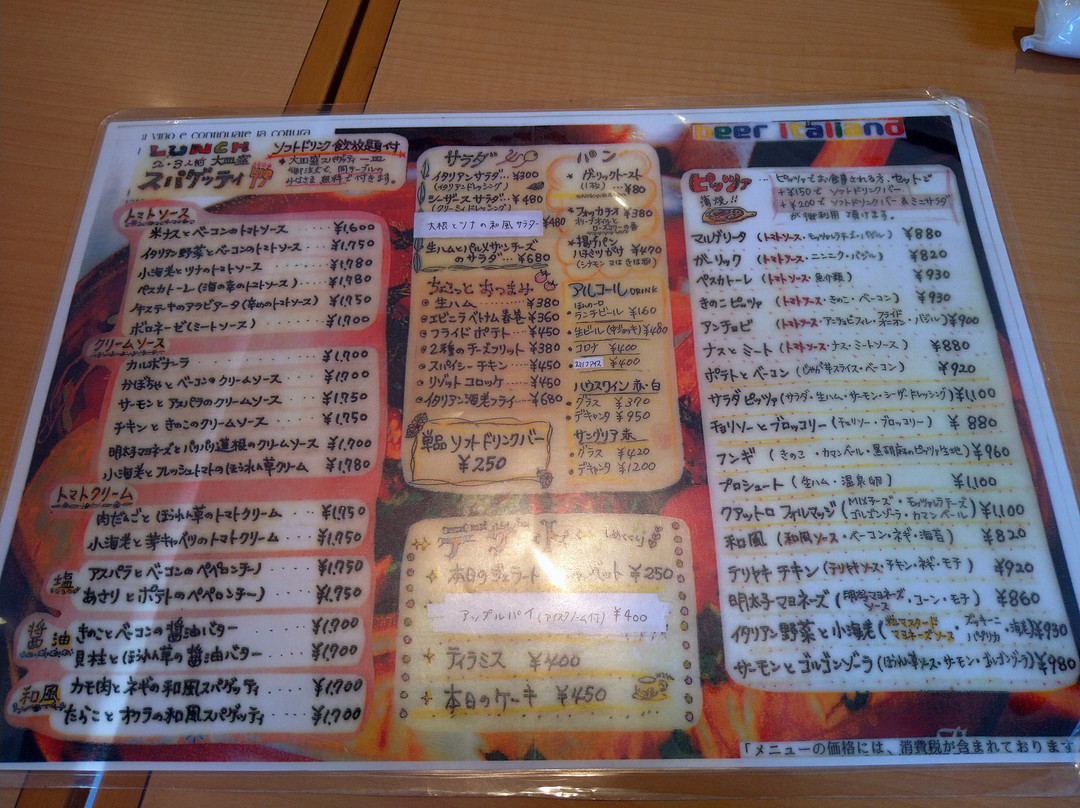 il vino e continuate la cottura
LUNCH
2・3人前 大皿盛
スパゲッティ
ソフトドリンク飲放題付
トマトソース
米ナスとベーコンのトマトソース ¥1,600
イタリアン野菜とベーコンのトマトソース ¥1,750
小海老とツナのトマトソース ¥1,780
ペスカトーレ(海の幸のトマトソース) ¥1,780
牛ステーキのアラビアータ(辛めのトマトソース) ¥1,750
ボロネーゼ(ミートソース) ¥1,700
クリームソース
カルボナーラ ¥1,700
かぼちゃとベーコンのクリームソース ¥1,700
サーモンとアスパラのクリームソース ¥1,750
チキンときのこのクリームソース ¥1,750
明太子マヨネーズとパリパリ蓮根のクリームソース ¥1,700
小海老とフレッシュトマトのほうれん草クリーム ¥1,780
トマトクリーム
肉だんごとほうれん草のトマトクリーム ¥1,750
小海老と芽キャベツのトマトクリーム ¥1,750
塩
アスパラとベーコンのペペロンチーノ ¥1,750
あさりとポテトのペペロンチーノ ¥1,750
醤油
きのことベーコンの醤油バター ¥1,700
貝柱とほうれん草の醤油バター ¥1,700
和風
カモ肉とネギの和風スパゲッティ ¥1,700
たらことオクラの和風スパゲッティ ¥1,700
サラダ
イタリアンサラダ ¥300
(イタリアンドレッシング)
シーザースサラダ ¥480
(クリーミィドレッシング)
大根とツナの和風サラダー ¥480
生ハムとパルメザンチーズ
のサラダ ¥680
ちょこっとおつまみ
生ハム ¥380
エビニラベトナム春巻 ¥360
フライドポテト ¥450
2種のチーズフリット ¥380
スパイシーチキン ¥450
リゾットコロッケ ¥450
イタリアン海老フライ ¥680
単品 ソフトドリンクバー
¥250
パン
*ガーリックトースト
(1枚) ¥80
*フォッカチオ ¥380
*揚げパン
ハチミツがけ ¥470
アルコール DRINK
ランチビール ¥160
生ビール(中ジョッキ) ¥480
コロナ ¥400
¥400
ハウスワイン 赤・白
グラス ¥370
デキャンタ ¥950
サングリア 赤
グラス ¥420
デキャンタ ¥1200
デザート
本日のジェラート ¥250
アップルパイ(アイスクリーム付) ¥400
ティラミス ¥400
本日のケーキ ¥450
beer italiano
ピッツァ
ピッツァでお食事される方、セットで
+¥150で ソフトドリンクバー
+¥200で ソフトドリンクバー&ミニサラダ
が御利用 頂けます。
マルゲリータ (トマトソース・モッツァレラチーズ・バジル) ¥880
ガーリック (トマトソース・ニンニク・バジル) ¥820
ペスカトーレ (トマトソース・魚介類) ¥930
きのこピッツァ (トマトソース・きのこ・ベーコン) ¥930
アンチョビ (トマトソース・アンチョビフィレ・フライドオニオン・バジル) ¥900
ナスとミート (トマトソース・ナス・ミートソース) ¥880
ポテトとベーコン (じゃが芋スライス・ベーコン) ¥920
サラダピッツァ (サラダ・生ハム・サーモン・シーザードレッシング) ¥1,100
チョリソーとブロッコリー (チョリソー・ブロッコリー) ¥880
フンギ (きのこ・カマンベール・黒胡麻のピッツァ生地) ¥960
プロシュート (生ハム・温泉卵) ¥1,100
クアットロ フォルマッジ (MIXチーズ・モッツァレラチーズ・ゴルゴンゾーラ・カマンベール) ¥1,100
和風 (和風ソース・ベーコン・ネギ・海苔) ¥820
テリヤキチキン (テリヤキソース・チキン・ネギ・モチ) ¥920
明太子マヨネーズ (明太子マヨネーズソース・コーン・モチ) ¥860
イタリアン野菜と小海老 (粒マスタードマヨネーズソース・ズッキーニ・パプリカ・海老) ¥930
サーモンとゴルゴンゾーラ (ほうれん草ソース・サーモン・ゴルゴンゾーラ) ¥980
「メニューの価格には、消費税が含まれております